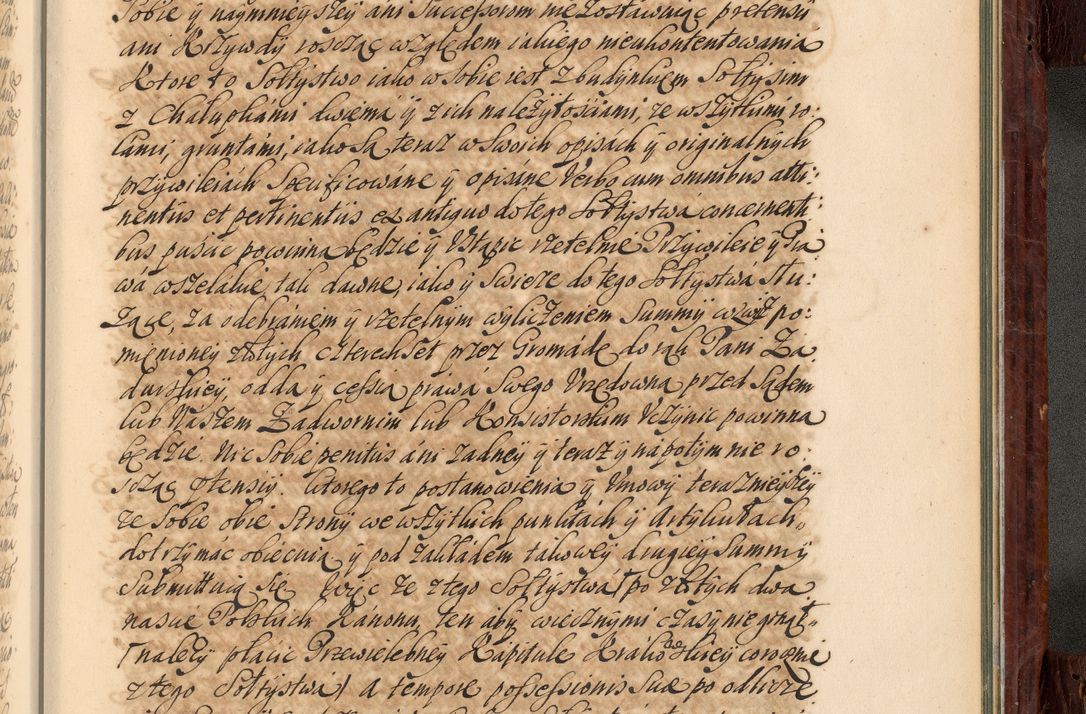 Sobie ÿ naÿmnieÿszeÿ ani Successorom nie zostawuiąc pretensii
ani Krzywdÿ roscząc względem iakiego nieukontentowania
Ktore to Sołtÿstwo iako w sobie iest z budÿnkiem Sołtysim
z Chałupkámi dwiema ÿ z ich należÿtosciámi, ze wszÿtkimi ro:
lami, gruntámi, iako są teraz w swoich opisách ÿ originalnÿch
przÿwileiách Specificowáne ÿ opisáne Verbo cum omnibus atti:
nentiis et pertinentiis ex antiquo do tego Sołtÿstwa concernenti:
bus puścic powinna będzie ÿ Wszÿtkie rzetelnie Przÿwileie ÿ Pra
wa wszelakie, tak dawne, iako ÿ Swieze do tego Sołtÿstwa słu:
żące, za odebrániem ÿ rzetelnÿm wÿliczeniem Summÿ wzwÿż po:
mienioneÿ złotÿch czterechset przez Gromádę do rąk Pani Za
durskieÿ, odda ÿ cessią práwá swego Vrzędowną przed Sądem
lub Naszem Zadwornim lub Konsistorskim Vczÿnic powinna
będzie. Nic sobie penitus áni żadneÿ ÿ teraz ÿ napotÿm nie ro:
scząc ptensiÿ. Ktorego to postanowienia ÿ Vmowÿ teraznieÿszeÿ
ze sobie obie Stronÿ we wszÿtkich punktách ÿ Artÿkułach
dotrzÿmac obiecuią ÿ pod zakładem takoweÿ drugieÿ Summÿ
Submittuią się. Więc że z tego Sołtÿstwá po złotÿch dwa
nascie Polskich Kánonu, ten abÿ wiecznÿmi czasÿ nie ginął
należÿ płacic Przewielebneÿ Kápitule Krakowskieÿ corocznie
z tego Sołtÿstwá) a tempore possessionis suæ po odlicze